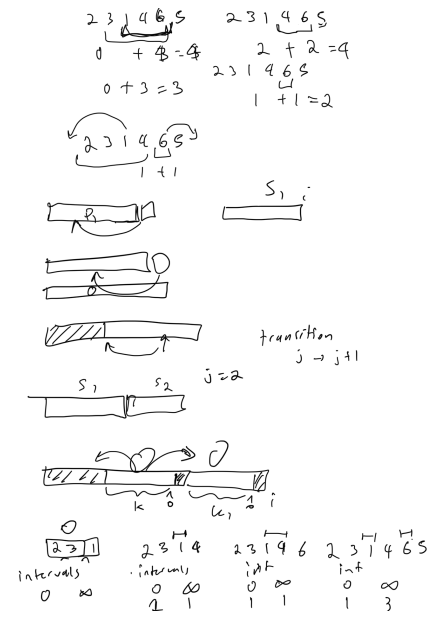 2 3 1 4 6 5
0 + 4 = 4
0 + 3 = 3
2 3 1 4 6 5
2 + 2 = 4
2 3 1 4 6 5
1 + 1 = 2
2 3 1 4 6 5
1 + 1
P1
S1 i
0
transition
j → j+1
S1 S2 j=2
k 0 k1 0 i
0
2 3 1
intervals
0 ∞
2 3 1 4
intervals
0 ∞
1 1
2 3 1 4 6
int
0 ∞
1 1
2 3 1 4 6 5
int
0 ∞
1 3